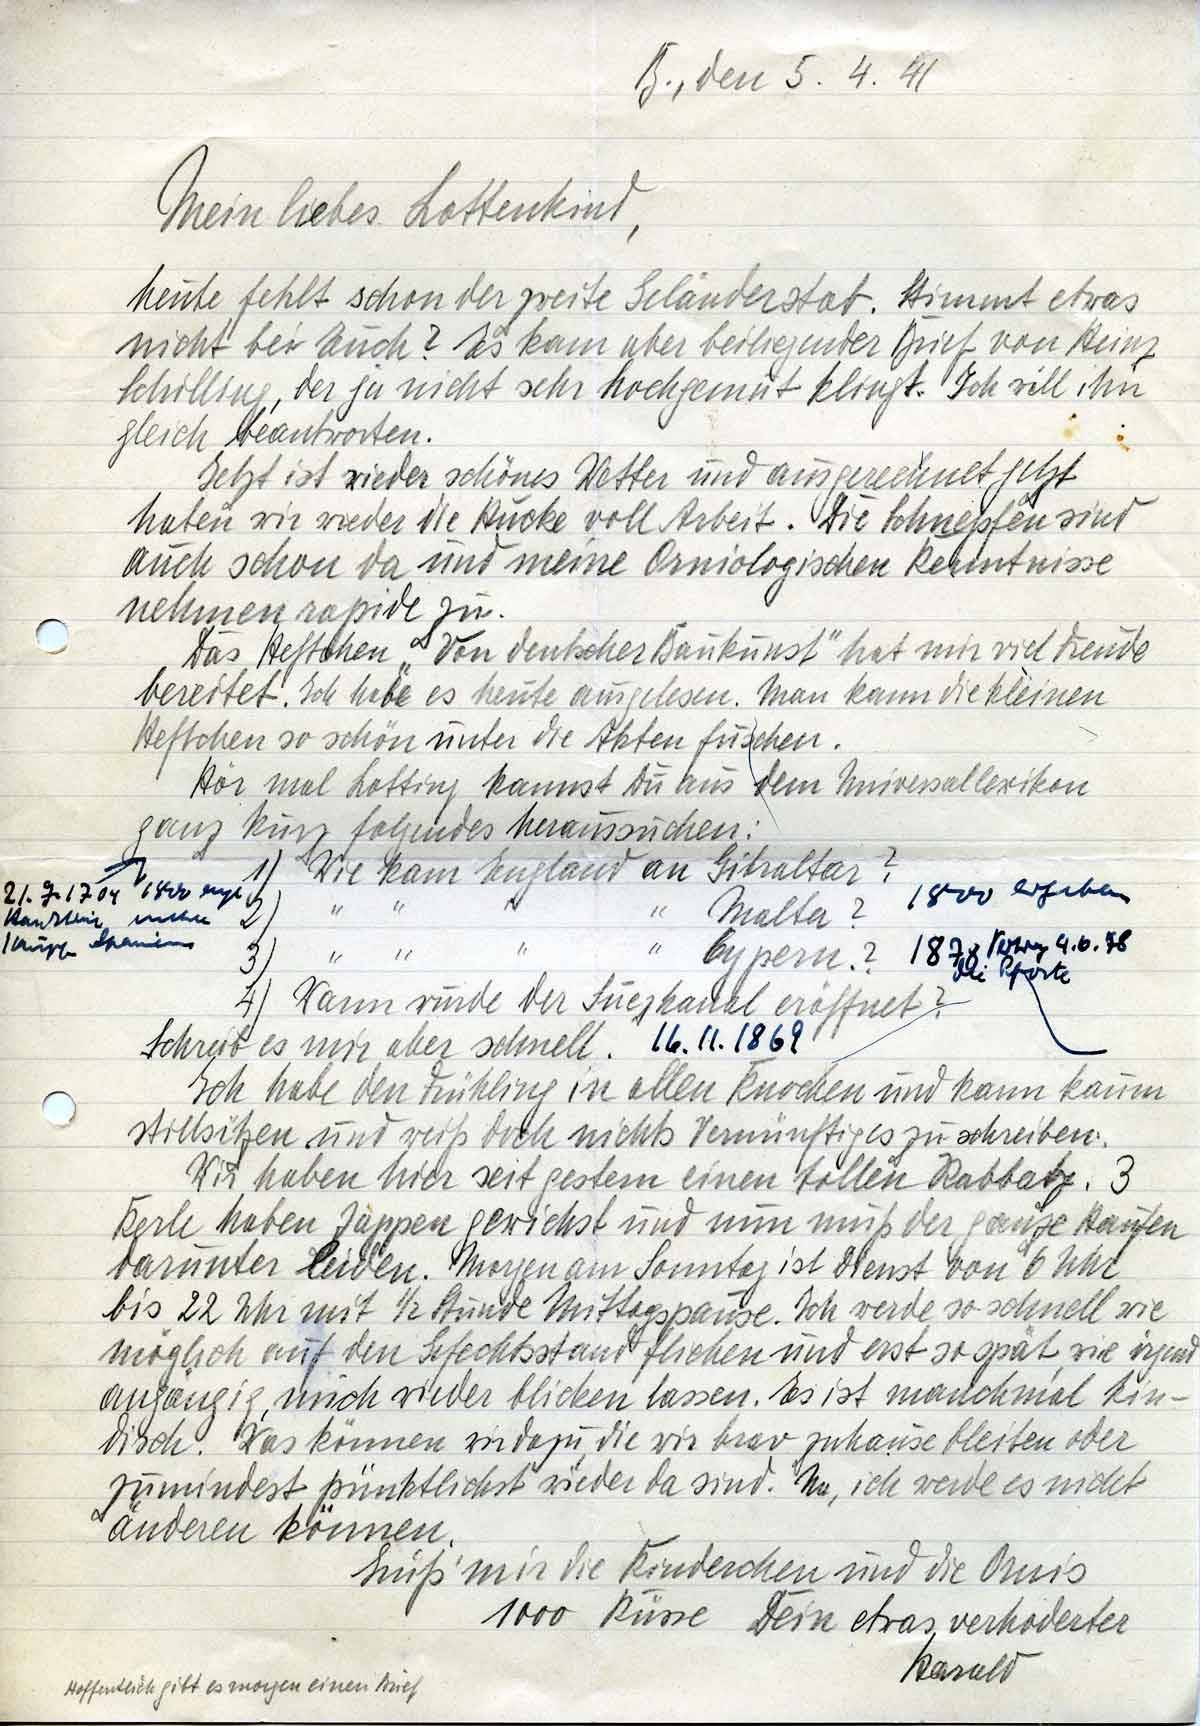 B., den 5. 4. 41
Mein liebes Lottenkind,
heute fehlt schon der zweite Geländerstab. Stimmt etwas
nicht bei Euch? Es kam aber beiliegender Brief von Heinz
Schilling, der ja nicht sehr hochgemut klingt. Ich will ihn
gleich beantworten.
Jetzt ist wieder schönes Wetter und ausgerechnet jetzt
haben wir wieder die Hucke voll Arbeit. Die Schnepfen sind
auch schon da und meine Orniologischen Kenntnisse
nehmen rapide zu.
Das Heftchen „Von deutscher Baukunst" hat mir viel Freude
bereitet. Ich habe es heute ausgelesen. Man kann die kleinen
Heftchen so schön unter die Akten fuschen.
Hör mal Lotting kannst Du aus dem Universallexikon
ganz kurz folgendes heraussuchen:
1) Wie kam England an Gibraltar?
21.7.1704
2) " " " " Malta? 1800 ergeben
3) " " " " Cypern.? 1878 Vertrag 4.6.78
die Pforte
4) Wann wurde der Suezkanal eröffnet?
Schreib es mir aber schnell. 16.11.1869
Ich habe den Frühling in allen Knochen und kann kaum
stillsitzen und weiß doch nichts Vernünftiges zu schreiben.
Wir haben hier seit gestern einen tollen Rabbatz. 3
Kerle haben Zappen gewichst und nun muß der ganze Haufen
darunter leiden. Morgen am Sonntag ist Dienst von 6 Uhr
bis 22 Uhr mit ½ Stunde Mittagspause. Ich werde so schnell wie
möglich auf den Gefechtsstand flichen und erst so spät wie irgend
angängig, mich wieder blicken lassen. Es ist manchmal kin-
disch. Was können wir dazu, die wir brav zuhause bleiben oder
zumindest pünktlichst wieder da sind. Na, ich werde es nicht
änderen können.
Grüß' mir die Kinderchen und die Omis
1000 Küsse Dein etwas verhoderter
Harald
Hoffentlich gibt es morgen einen Brief